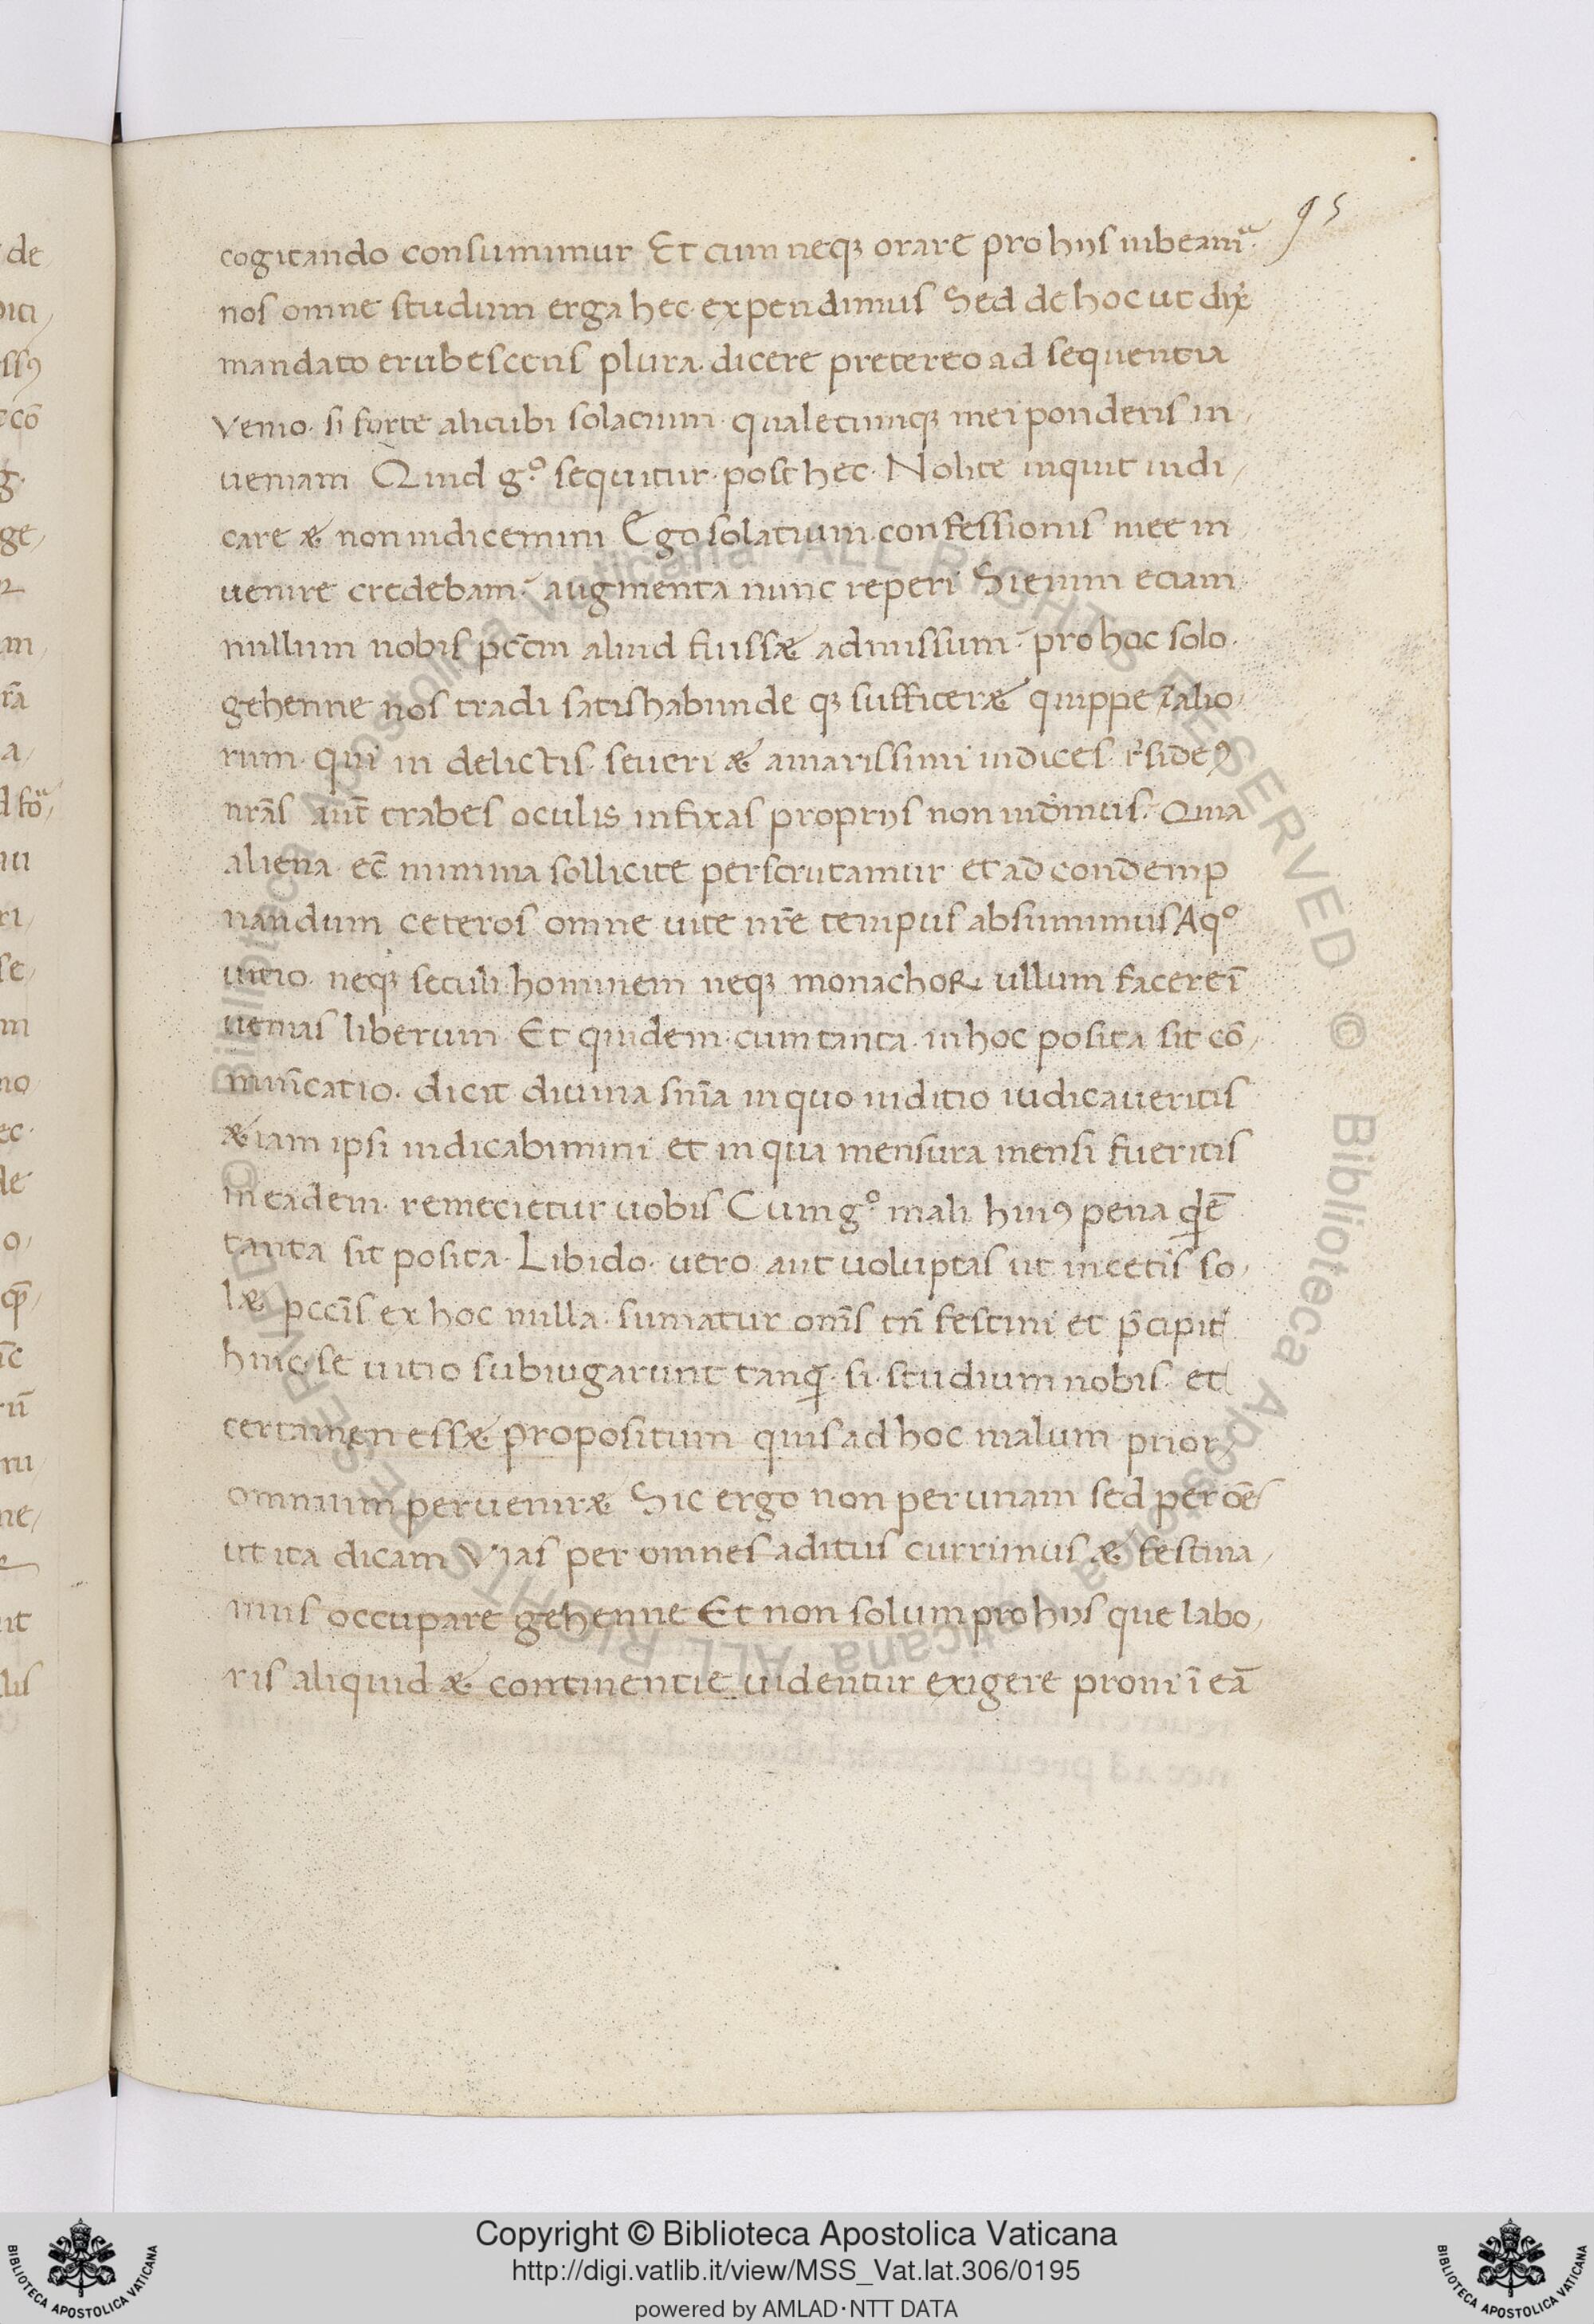 95
cogitando consumimur Et cum neqꝫ orare pro hijs iubeamᷓ
nos omne studium erga hec expendimus Sed de hoc ut dixi
mandato erubescens plura dicere pretereo ad sequentia
venio. si forte alicubi solacium qualecumqꝫ mei ponderis in
ueniam Quid gº sequitur post hec. Nolite inquit iudi
care & non iudicemini Ego solatium confessionis mee in
uenire credebam augmenta nunc reperi Si enim eciam
nullum nobis pccm̄ aliud fuiss& admissum pro hoc solo
gehenne nos tradi satis habunde qꝫ suffiter& quippe ī alio
rum qui in delictis seueri & amarissimi iudices
nrās aut̄ trabes oculis infixas proprijs non uidemus. Quia
aliena ec̄ minima sollicite perscrutamur et ad condemp
nandum ceteros omne uite nr̄e tempus absumimus A qº
uitio neqꝫ seculi hominem neqꝫ monachoꝝ ullum facere ī
uenias liberum Et quidem cum tanta in hoc posita sit cō
minicatio. dicit diuina sn̄ia in quo iuditio iudicaueritis
&iam ipsi iudicabimini et in qua mensura mensi fueritis
in eadem remecietur uobis Cum gº mali huiꝰ pena qdē
tanta sit posita. Libido uero aut uoluptas ut in cetis so
l& pccīs ex hoc nulla sumatur om̄s tn̄ festini et p̄cipit
huic se uitio subiugarunt tanq̄ si studium nobis et
certamen ess& propositum quis ad hoc malum prior
omnium peruenir& Sic ergo non per unam sed per oēs
ut ita dicam vias per omnes aditus currimus & festina
mus occupare gehenne Et non solum pro hijs que labo
ris aliquid & continentie uidentur exigere proni ī eā
de
© Biblioteca Apostolica Vaticana ALL RIGHTS RESERVED © Biblioteca Apostolica Vaticana ALL RIGHTS RESERVED
Copyright © Biblioteca Apostolica Vaticana
http://digi.vatlib.it/view/MSS_Vat.lat.306/0195
powered by AMLAD·NTT DATA
BIBLIOTECA APOSTOLICA VATICANA
BIBLIOTECA APOSTOLICA VATICANA